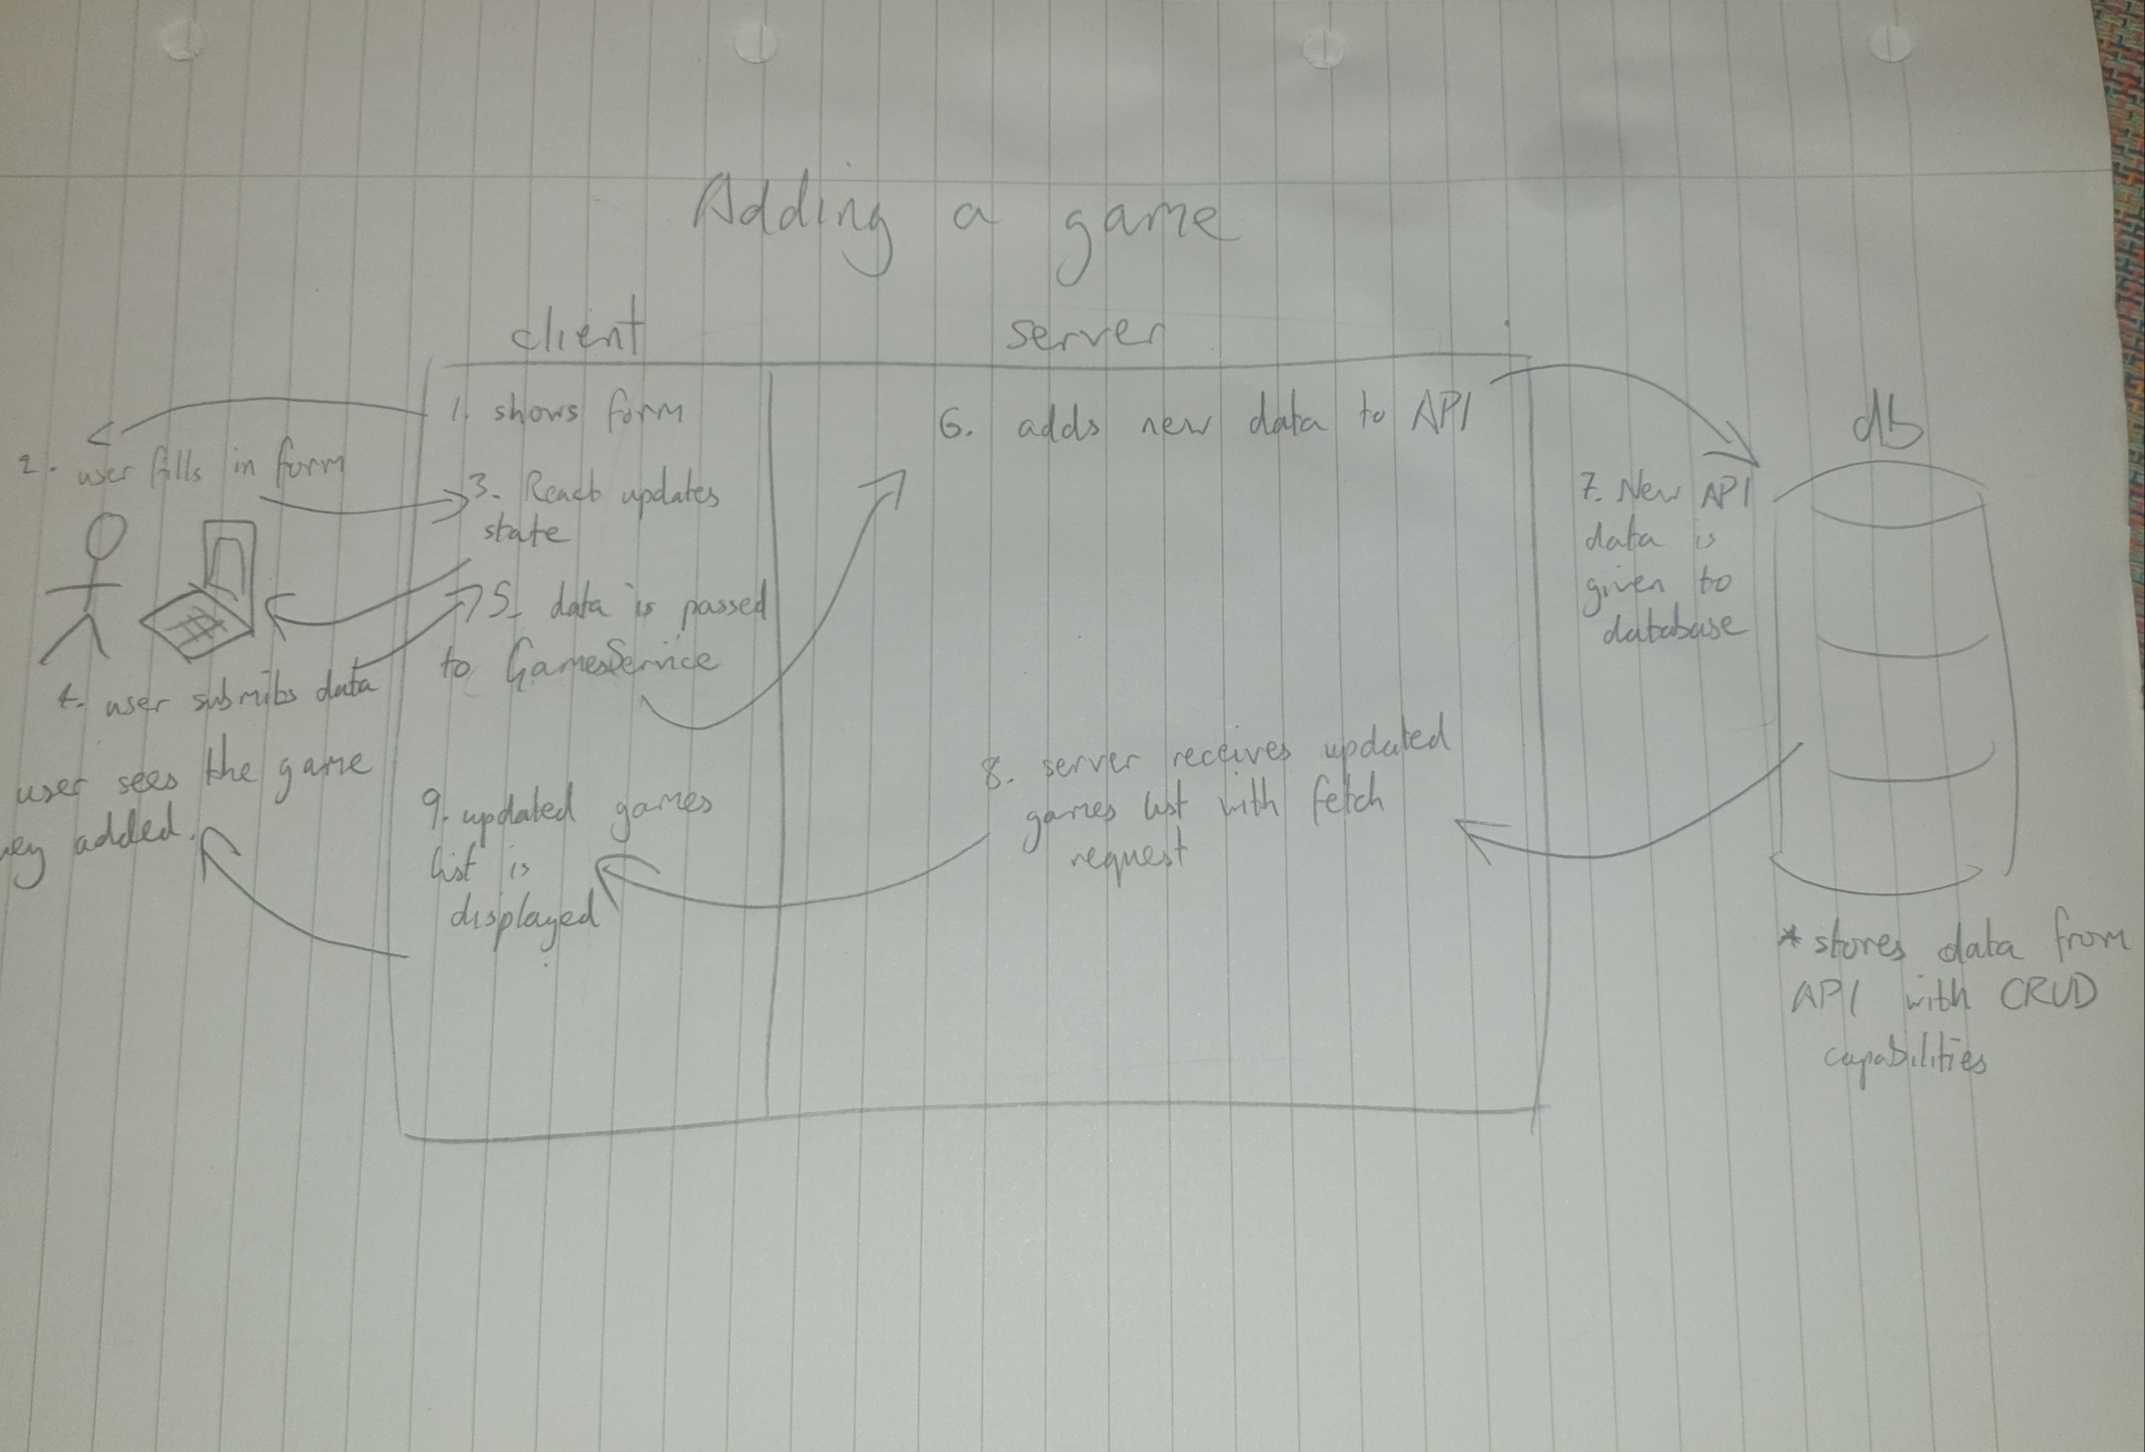 Adding a game
client
server
1. shows form
2. user fills in form
3. React updates
state
4. user submits data
5. data is passed
to GamesService
6. adds new data to API
7. New API
data is
given to
database
db
8. server receives updated
games list with fetch
request
9. updated games
list is
displayed
user sees the game
added.
* stores data from
API with CRUD
capabilities